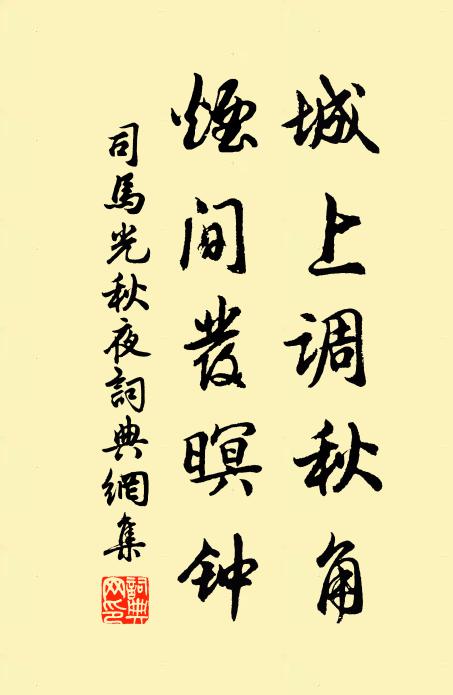 城上调秋角
煙间發暝钟
司馬光秋夜詞典網集
詞典网印